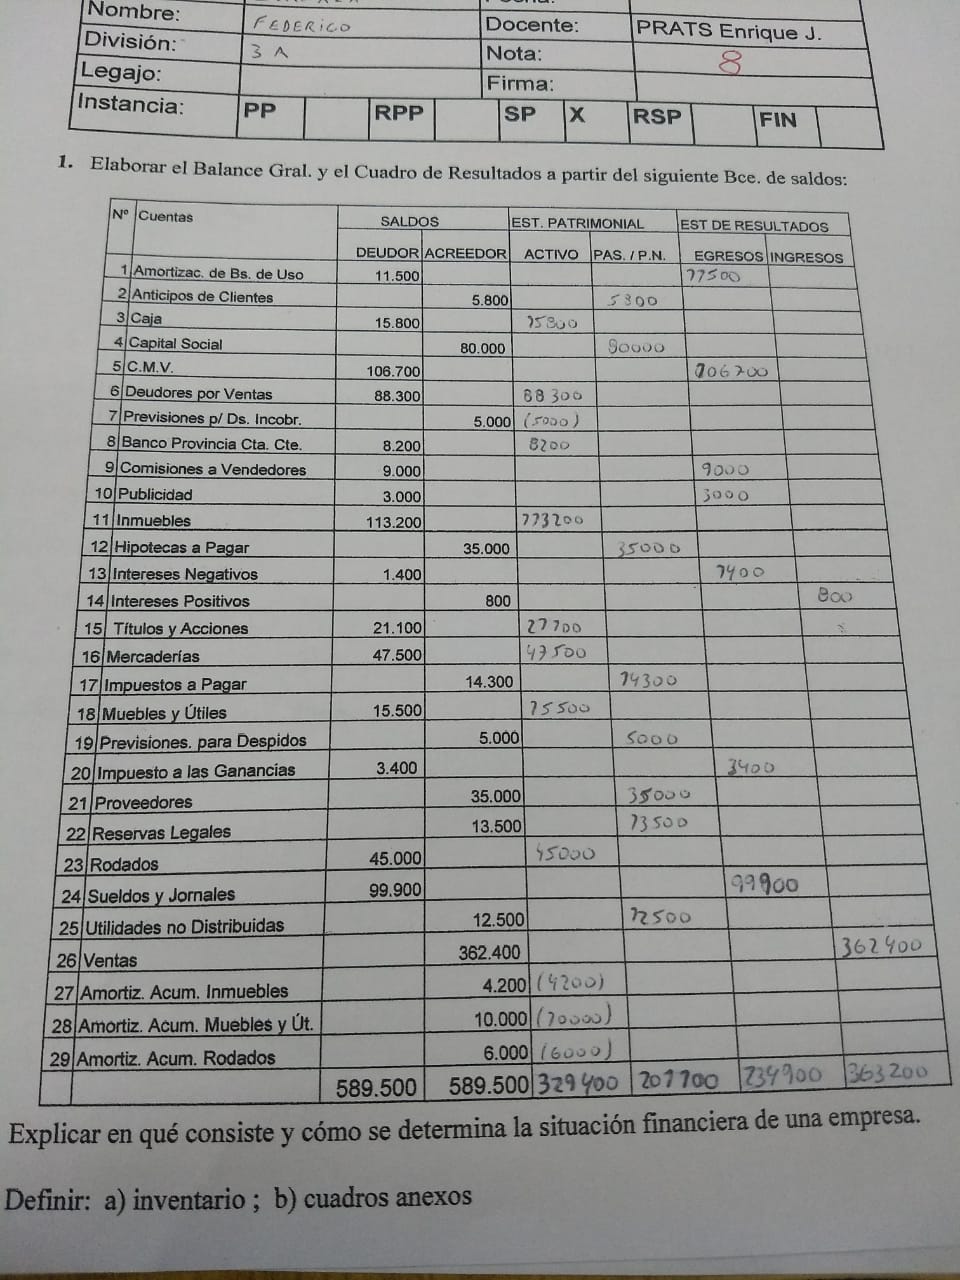 Nombre: FEDERICO Docente: PRATS Enrique J.
División: 3 A Nota: 8
Legajo: Firma:
Instancia: PP RPP SP X RSP FIN
1. Elaborar el Balance Gral. y el Cuadro de Resultados a partir del siguiente Bce. de saldos:
Nº Cuentas SALDOS EST. PATRIMONIAL EST DE RESULTADOS
DEUDOR ACREEDOR ACTIVO PAS. / P.N. EGRESOS INGRESOS
1 Amortizac. de Bs. de Uso 11.500 11500
2 Anticipos de Clientes 5.800 5800
3 Caja 15.800 15800
4 Capital Social 80.000 80000
5 C.M.V. 106.700 106700
6 Deudores por Ventas 88.300 88300
7 Previsiones p/ Ds. Incobr. 5.000 (5000)
8 Banco Provincia Cta. Cte. 8.200 8200
9 Comisiones a Vendedores 9.000 9000
10 Publicidad 3.000 3000
11 Inmuebles 113.200 113200
12 Hipotecas a Pagar 35.000 35000
13 Intereses Negativos 1.400 1400
14 Intereses Positivos 800 800
15 Títulos y Acciones 21.100 21100
16 Mercaderías 47.500 47500
17 Impuestos a Pagar 14.300 14300
18 Muebles y Útiles 15.500 15500
19 Previsiones. para Despidos 5.000 5000
20 Impuesto a las Ganancias 3.400 3400
21 Proveedores 35.000 35000
22 Reservas Legales 13.500 13500
23 Rodados 45.000 45000
24 Sueldos y Jornales 99.900 99900
25 Utilidades no Distribuidas 12.500 12500
26 Ventas 362.400 362400
27 Amortiz. Acum. Inmuebles 4.200 (4200)
28 Amortiz. Acum. Muebles y Út. 10.000 (10000)
29 Amortiz. Acum. Rodados 6.000 (6000)
589.500 589.500 329400 201100 234900 363200
Explicar en qué consiste y cómo se determina la situación financiera de una empresa.
Definir: a) inventario ; b) cuadros anexos